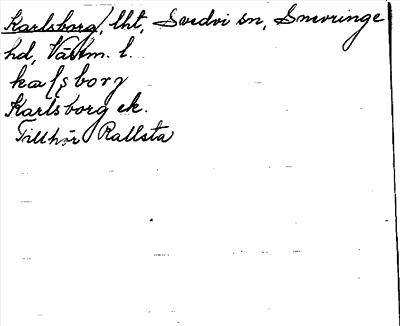 Karlsborg, lht, Svedvi sn, Snevringe
hd, Västm. l.
kaſʂborg
Karlsborg ek.
Tillhör Rallsta